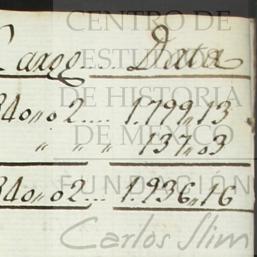 CENTRO DE
ESTUDIOS
DE HISTORIA
DE MÉXICO
FUNDACIÓN
Carlos Slim
Cargo.... Data
340,,02.... 1.799,,13
,, ,, ,, 137,,03
340,,02.... 1.936,,16